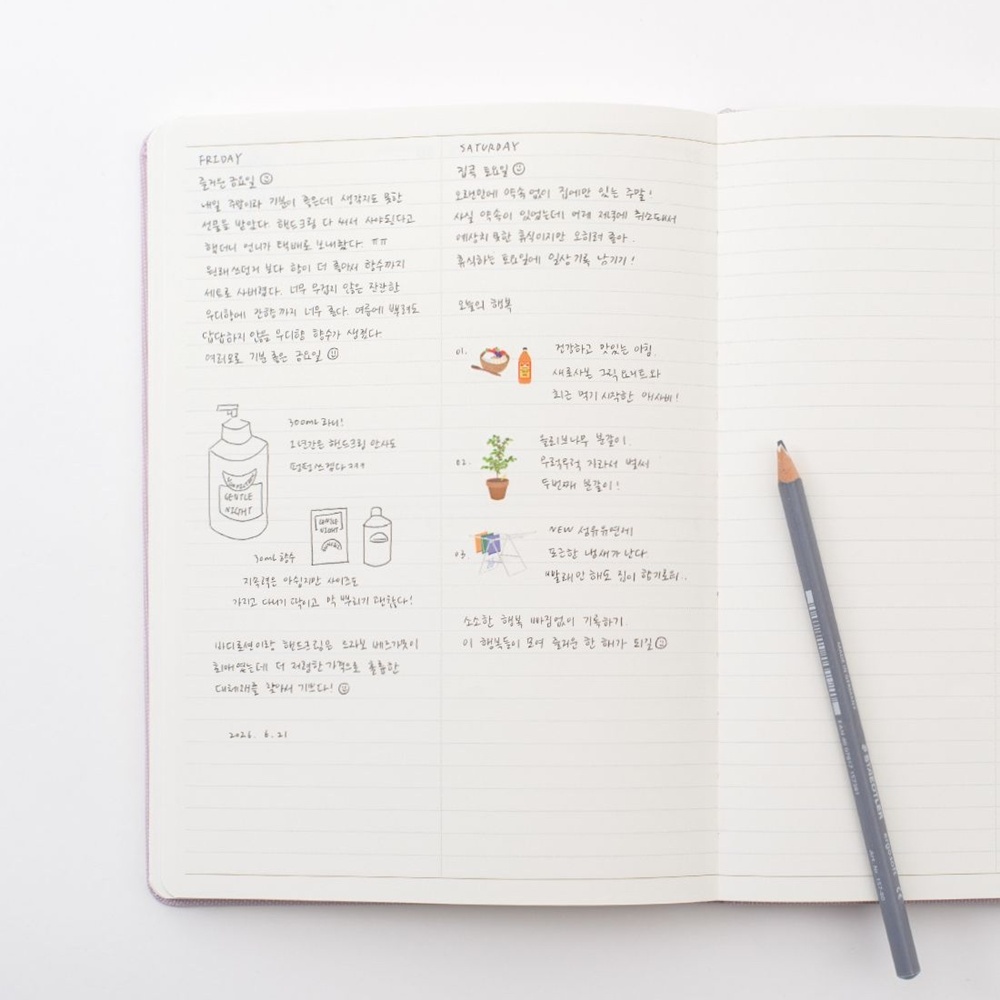 FRIDAY
즐거운 금요일
내일 주말이라 기분이 좋은데 생각지도 못한
선물을 받았다. 핸드크림 다 써서 사야된다고
했더니 언니가 택배로 보내줬다. ㅠㅠ
원래 쓰던거 보다 향이 더 좋아서 향수까지
세트로 사버렸다. 너무 무겁지 않은 잔잔한
우디향에 잔향까지 너무 좋다. 여름에 뿌려도
답답하지 않을 우디향 향수가 생겼다.
여러모로 기분 좋은 금요일
300ml 라니!
1년간은 핸드크림 안사도
텅텅 쓰겠다 ㅋㅋㅋ
GENTLE
NIGHT
GENTLE
NIGHT
30ml 향수
지속력은 아쉽지만 사이즈도
가지고 다니기 딱이고 막 뿌리기 괜찮다!
바디로션이랑 핸드크림은
최애였는데 더 저렴한 가격으로 훌륭한
대체재를 찾아서 기쁘다!
6. 21
SATURDAY
집콕 토요일
오랜만에 약속 없이 집에만 있는 주말!
사실 약속이 있었는데 어제 저녁에 취소돼서
예상치 못한 휴식이지만 오히려 좋아.
휴식하는 토요일에 일상 기록 남기기!
오늘의 행복
01.
건강하고 맛있는 아침.
새로사본 그릭요거트와
최근 먹기 시작한 애사비!
02.
올리브나무 분갈이.
무럭무럭 자라서 벌써
두번째 분갈이!
03
NEW 섬유유연제
포근한 냄새가 난다
빨래만 해도 집이 향기로워..
소소한 행복 빠짐없이 기록하기.
이 행복들이 모여 즐거운 한 해가 되길
STAEDTLER